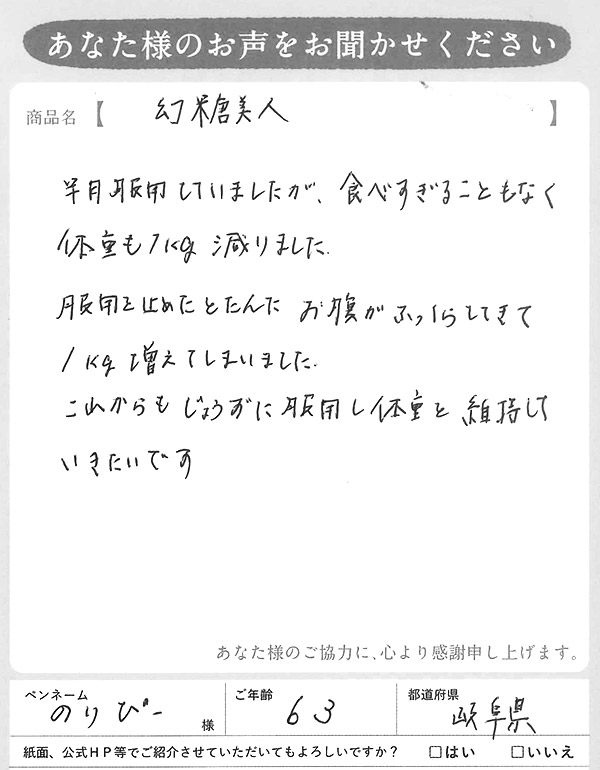 あなた様のお声をお聞かせください
商品名【 幻糖美人 】
半月服用していましたが、食べすぎることもなく
体重も1kg減りました.
服用を止めたとたんにお腹がふっくらしてきて
1kg増えてしまいました.
これからもじょうずに服用し体重を維持して
いきたいです
あなた様のご協力に、心より感謝申し上げます。
ペンネーム ご年齢 都道府県
のりぴー 様 63 岐阜県
紙面、公式HP等でご紹介させていただいてもよろしいですか？ □はい □いいえ